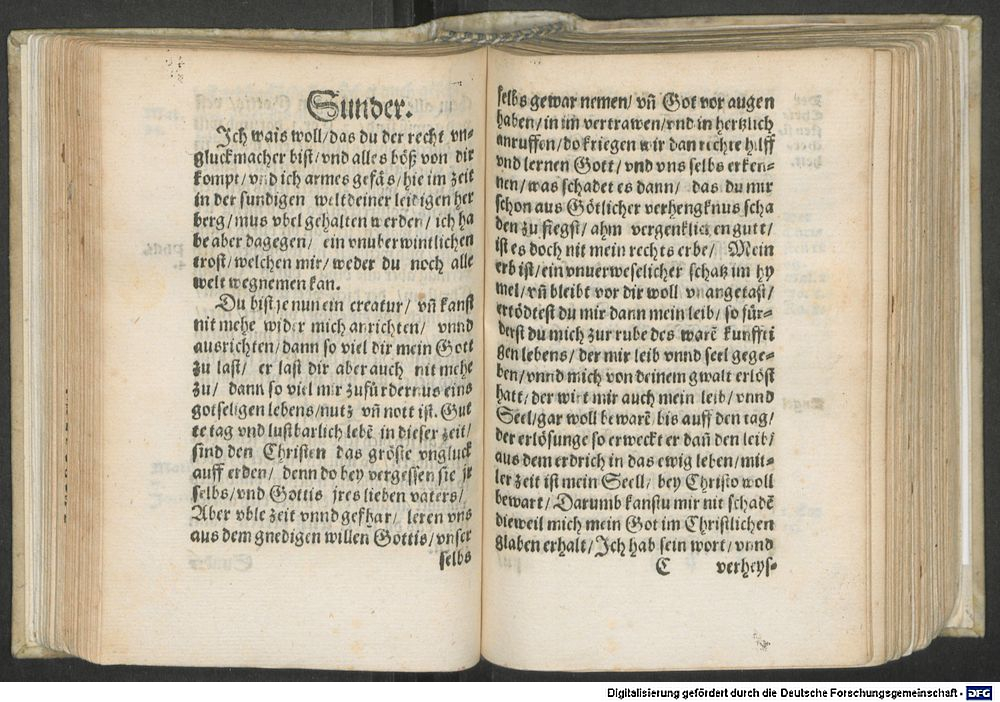 Sunder.
Ich wais woll/das du der recht vn-
gluckmacher bist/vnd alles böß von dir
kompt/vnd ich armes gefäs/hie im zeit
in der sundigen welt deiner leidigen her
berg/mus vbel gehalten werden/ich ha
be aber dagegen/ ein vnuberwintlichen
trost/welchen mir/weder du noch alle
welt wegnemen kan.
Du bist je nun ein creatur/ vñ kanst
nit mehe wider mich anrichten/ vnnd
ausrichten/dann so viel dir mein Gott
zu last/ er last dir aber auch nit mehe
zu/ dann so viel mir zufürdernus eins
gotseligen lebens/nutz vñ nott ist. Gut
te tag vnd lustbarlich lebē in dieser zeit/
sind den Christen das gröste vngluck
auff erden/ denn do bey vergessen sie jr
selbs/vnd Gottis jres lieben vaters/
Aber vble zeit vnnd gefhar/ leren vns
aus dem gnedigen willen Gottis/vnser
selbs
selbs gewar nemen/ vñ Got vor augen
haben/in im vertrawen/vnd in hertzlich
anruffen/do kriegen wir dan richte hilff
vnd lernen Gott/ vnd vns selbs erken-
nen/was schadet es dann/ das du mir
schon aus Götlicher verhengknus scha
den zu fiegst/ ahm vergenklichen gutt/
ist es doch nit mein rechts erbe/ Mein
erb ist/ein vnuerweselicher schatz im hy
mel/vñ bleibt vor dir woll vnangetast/
ertödtest du mir dann mein leib/so für-
derst du mich zur rube des warē kunffti
gen lebens/der mir leib vnnd seel gege-
ben/vnnd mich von deinem gwalt erlöst
hatt/der wirt mir auch mein leib/vnnd
Seel/gar woll bewarē bis auff den tag/
der erlösunge so erweckt er dañ den leib/
aus dem erdrich in das ewig leben/mit-
ler zeit ist mein Seell/ bey Christo woll
bewart/Darumb kanstu mir nit schadē
dieweil mich mein Got im Christlichen
glaben erhalt/Ich hab sein wort/vnnd
C verheys-
Digitalisierung gefördert durch die Deutsche Forschungsgemeinschaft - DFG